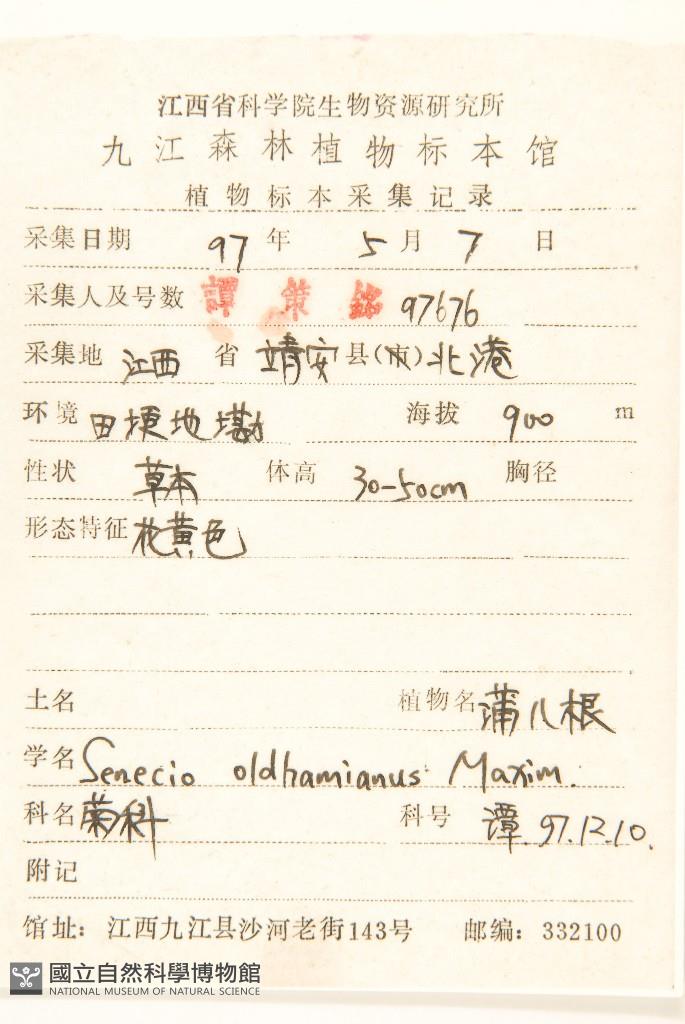 江西省科学院生物资源研究所
九江森林植物标本馆
植物标本采集记录
采集日期 97 年 5 月 7 日
采集人及号数 譚策銘 97676
采集地 江西 省 靖安县(市)北港
环境 田埂地墈 海拔 900 m
性状 草本 体高 30-50cm 胸径
形态特征 花黄色
土名 植物名 蒲儿根
学名 Senecio oldhamianus Maxim.
科名 菊科 科号 谭.97.12.10.
附记
馆址：江西九江县沙河老街143号 邮编：332100
國立自然科學博物館
NATIONAL MUSEUM OF NATURAL SCIENCE